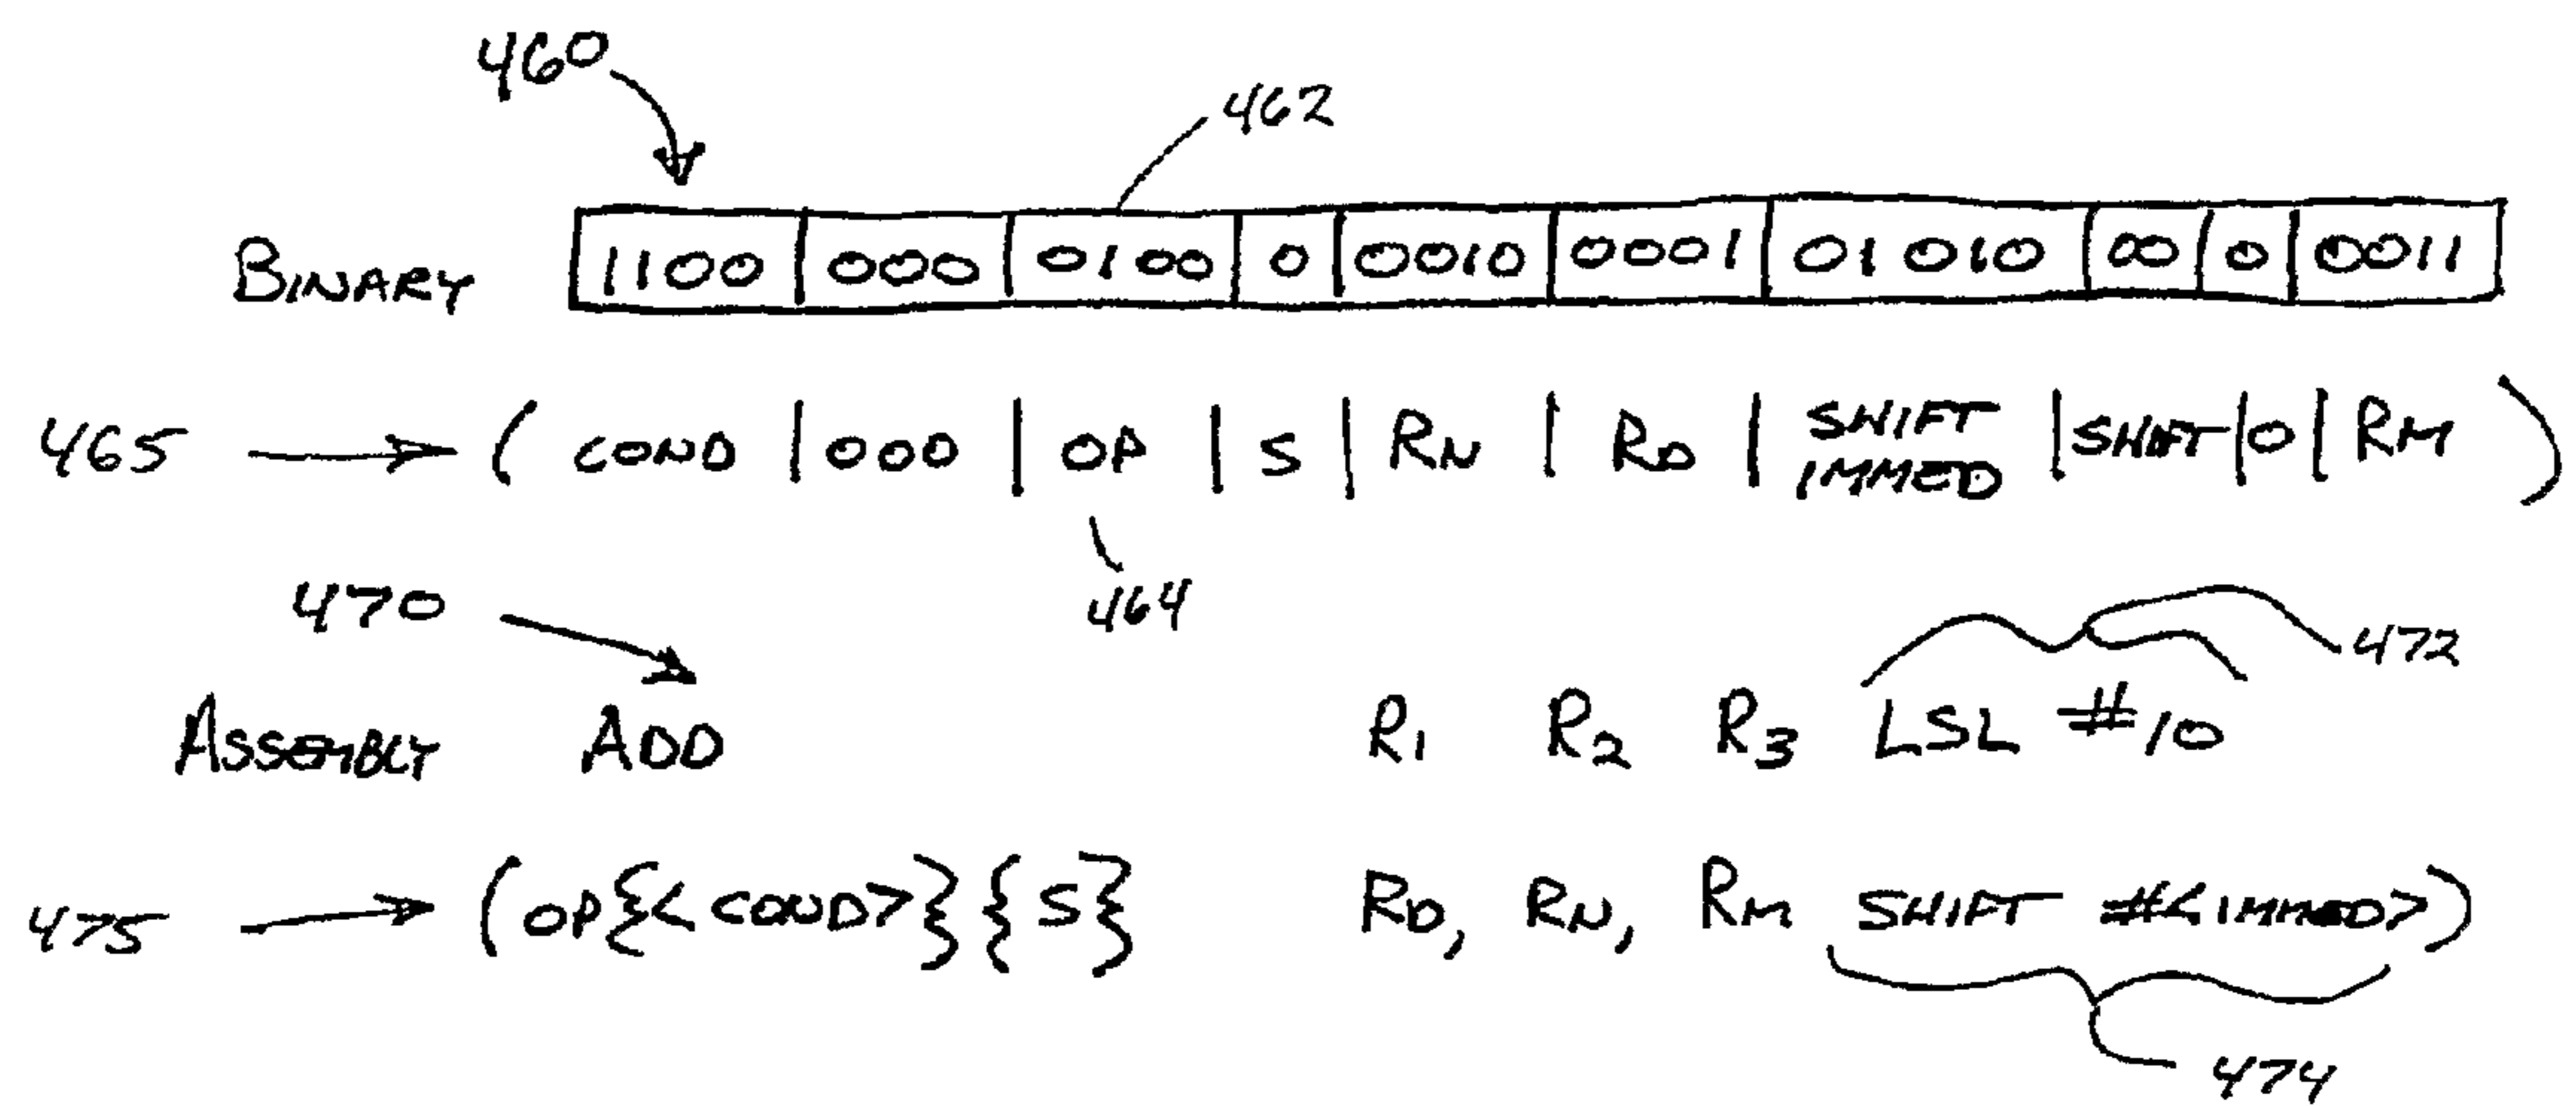 460
462
BINARY 1100 | 000 | 0100 | 0 | 0010 | 0001 | 01010 | 00 | 0 | 0011
465 ( COND | 000 | OP | S | RN | RD | SHIFT IMMED | SHIFT | 0 | RM )
464
470
472
ASSEMBLY ADD R1 R2 R3 LSL #10
475 (OP{<COND>}{S} RD, RN, RM SHIFT #<IMMED>)
474